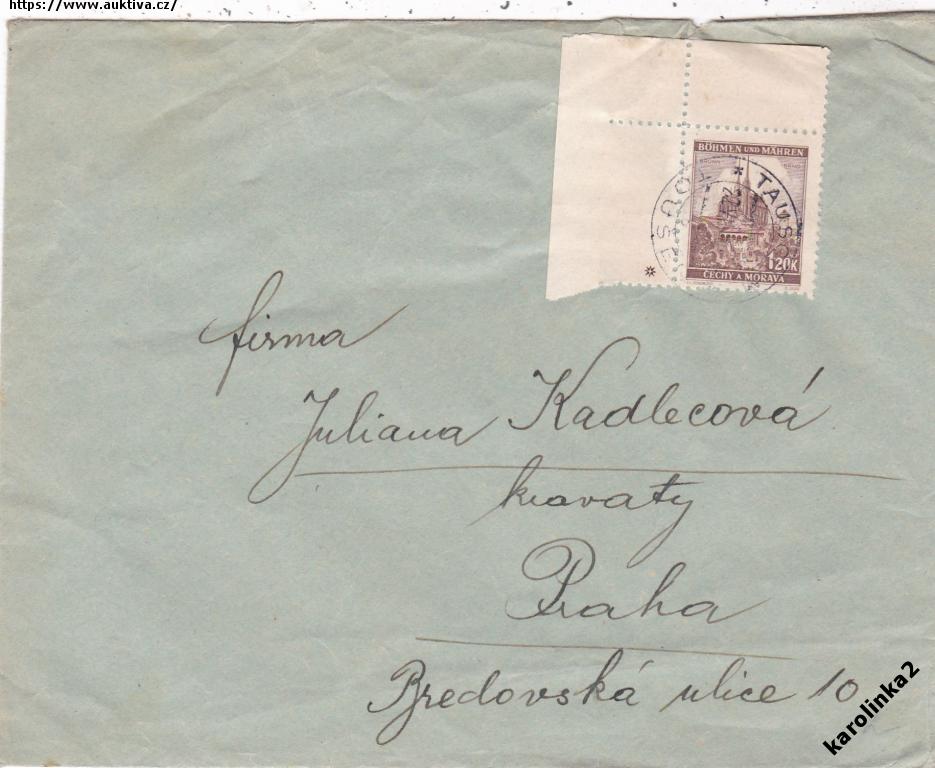 https://www.auktiva.cz/
BÖHMEN UND MÄHREN
1·20K
ČECHY A MORAVA
firma
Juliana Kadlecová
kravaty
Praha
Bredovská ulice 10
karolinka2